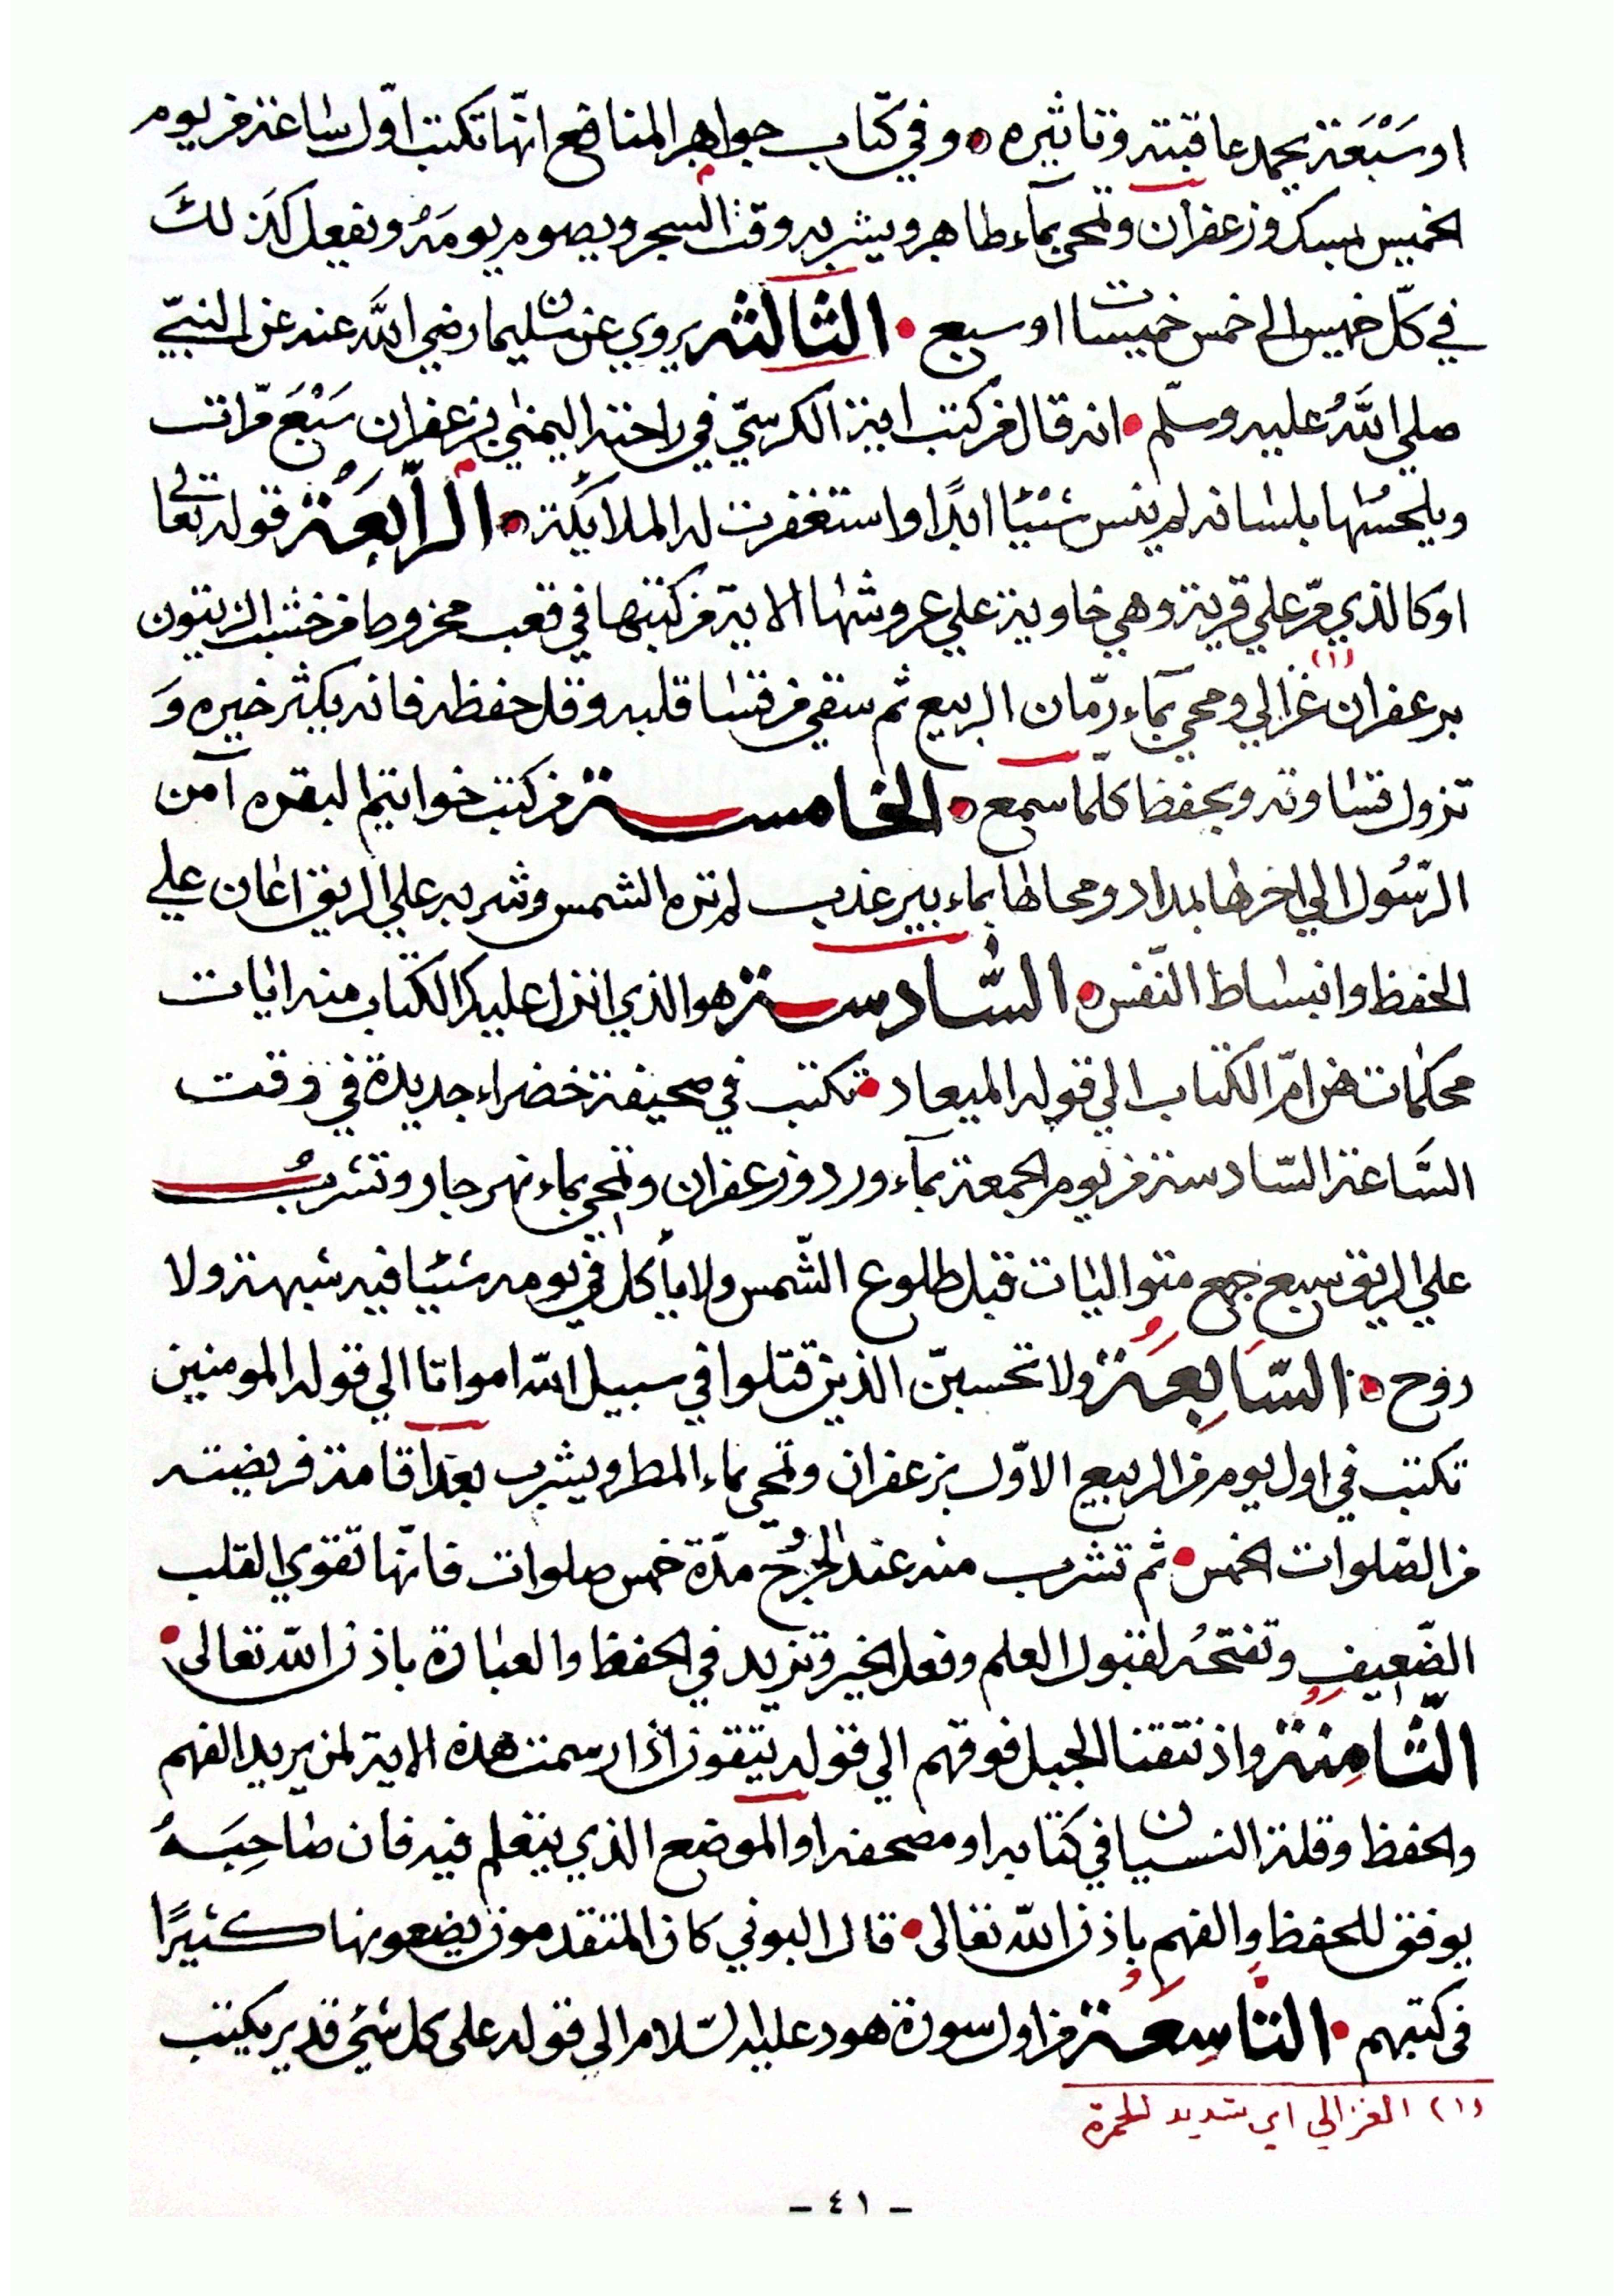 او سَبْعَة يحمد عاقبته وتاثيره ۞ وفي كتاب جواهر المنافع انّها تكتب اوّل ساعة من يوم
الخميس بمسك وزعفران وتمحى بمآء طاهر ويشربه وقت السحر ويصوم يومَهُ ويفعل كَذلكَ
في كلّ خميس الى خمس خميسات او سبع • الثالثه يروي عن سليمان رضي اللَّه عنه عن النبيّ
صلى اللَّهُ عليه وسلّم • انه قال من كتب اية الكرسيّ في راحته اليمنى بزعفران سَبْعَ مرّات
ويلحسُها بلسانه لم ينس شَيْئًا ابدًا واستغفرت له الملايكة • الرّابعَة قوله تعالى
او كالذي مرّ علي قرية وهي خاوية علي عروشها الاية من كتبها في قعب مخروط من خشب الزيتون
بزعفران (١) غزالي ومحي بمآء رمّان الربيع ثم سقي من قسا قلبه وقل حفظه فانه يكثر خيره وَ
تزول قساوته ويحفظ كلّما سمع • الخامسة من كتب خواتيم البقره آمن
الرّسُول الي اخرها بمداد ومحاها بماء بير عذب لم تره الشمس وشربه علي الريق اعان علي
الحفظ وانبساط النّفس • السّادسة هو الذي انزل عليك الكتاب منه ايات
محكمات هن امّ الكتاب الي قوله الميعاد • تكتب في صحيفة خضراء جديدة في وقت
السَّاعة السّادسة من يوم الجمعة بمآء ورد وزعفران وتمحي بماء نهر جار وتشربُ
علي الريق سبع جمع متواليات قبل طلوع الشّمس ولا يأكل في يومه شيئا فيه شبهة ولا
روح • السّابِعَة ولا تحسبنّ الذين قتلوا في سبيل اللّه امواتا الي قوله المومنين
تكتب في اول يوم من الربيع الاوّل بزعفران وتمحي بماء المطر ويشرب بعد اقامة فريضته
من الصّلوات الخمس • ثم تشرب منه عند مدّة خمس صلوات فانّها تقوي القلب
الضّعيف وتفتحُه لقبول العلم وفعل الخير وتزيد في الحفظ والعبادة باذن اللّه تعالى •
الثّامِنَة واذ نتقنا الجبل فوقهم الي قوله يتقون اذا رسمت هذه الاية لمن يريد الفهم
والحفظ وقلة النسيان في كتابه او مصحفه او الموضع الذي يتعلم فيه فان صَاحِبَهُ
يوفق للحفظ والفهم باذن اللّه تعالى • قال البوني كان المتقدمون يضعونها كثيرًا
في كتبهم • التّاسِعَة من اول سورة هود عليه السّلام الي قوله على كل شئ قدير يكتب
(١) الغزالي اي شديد الحمرة
- ٤١ -